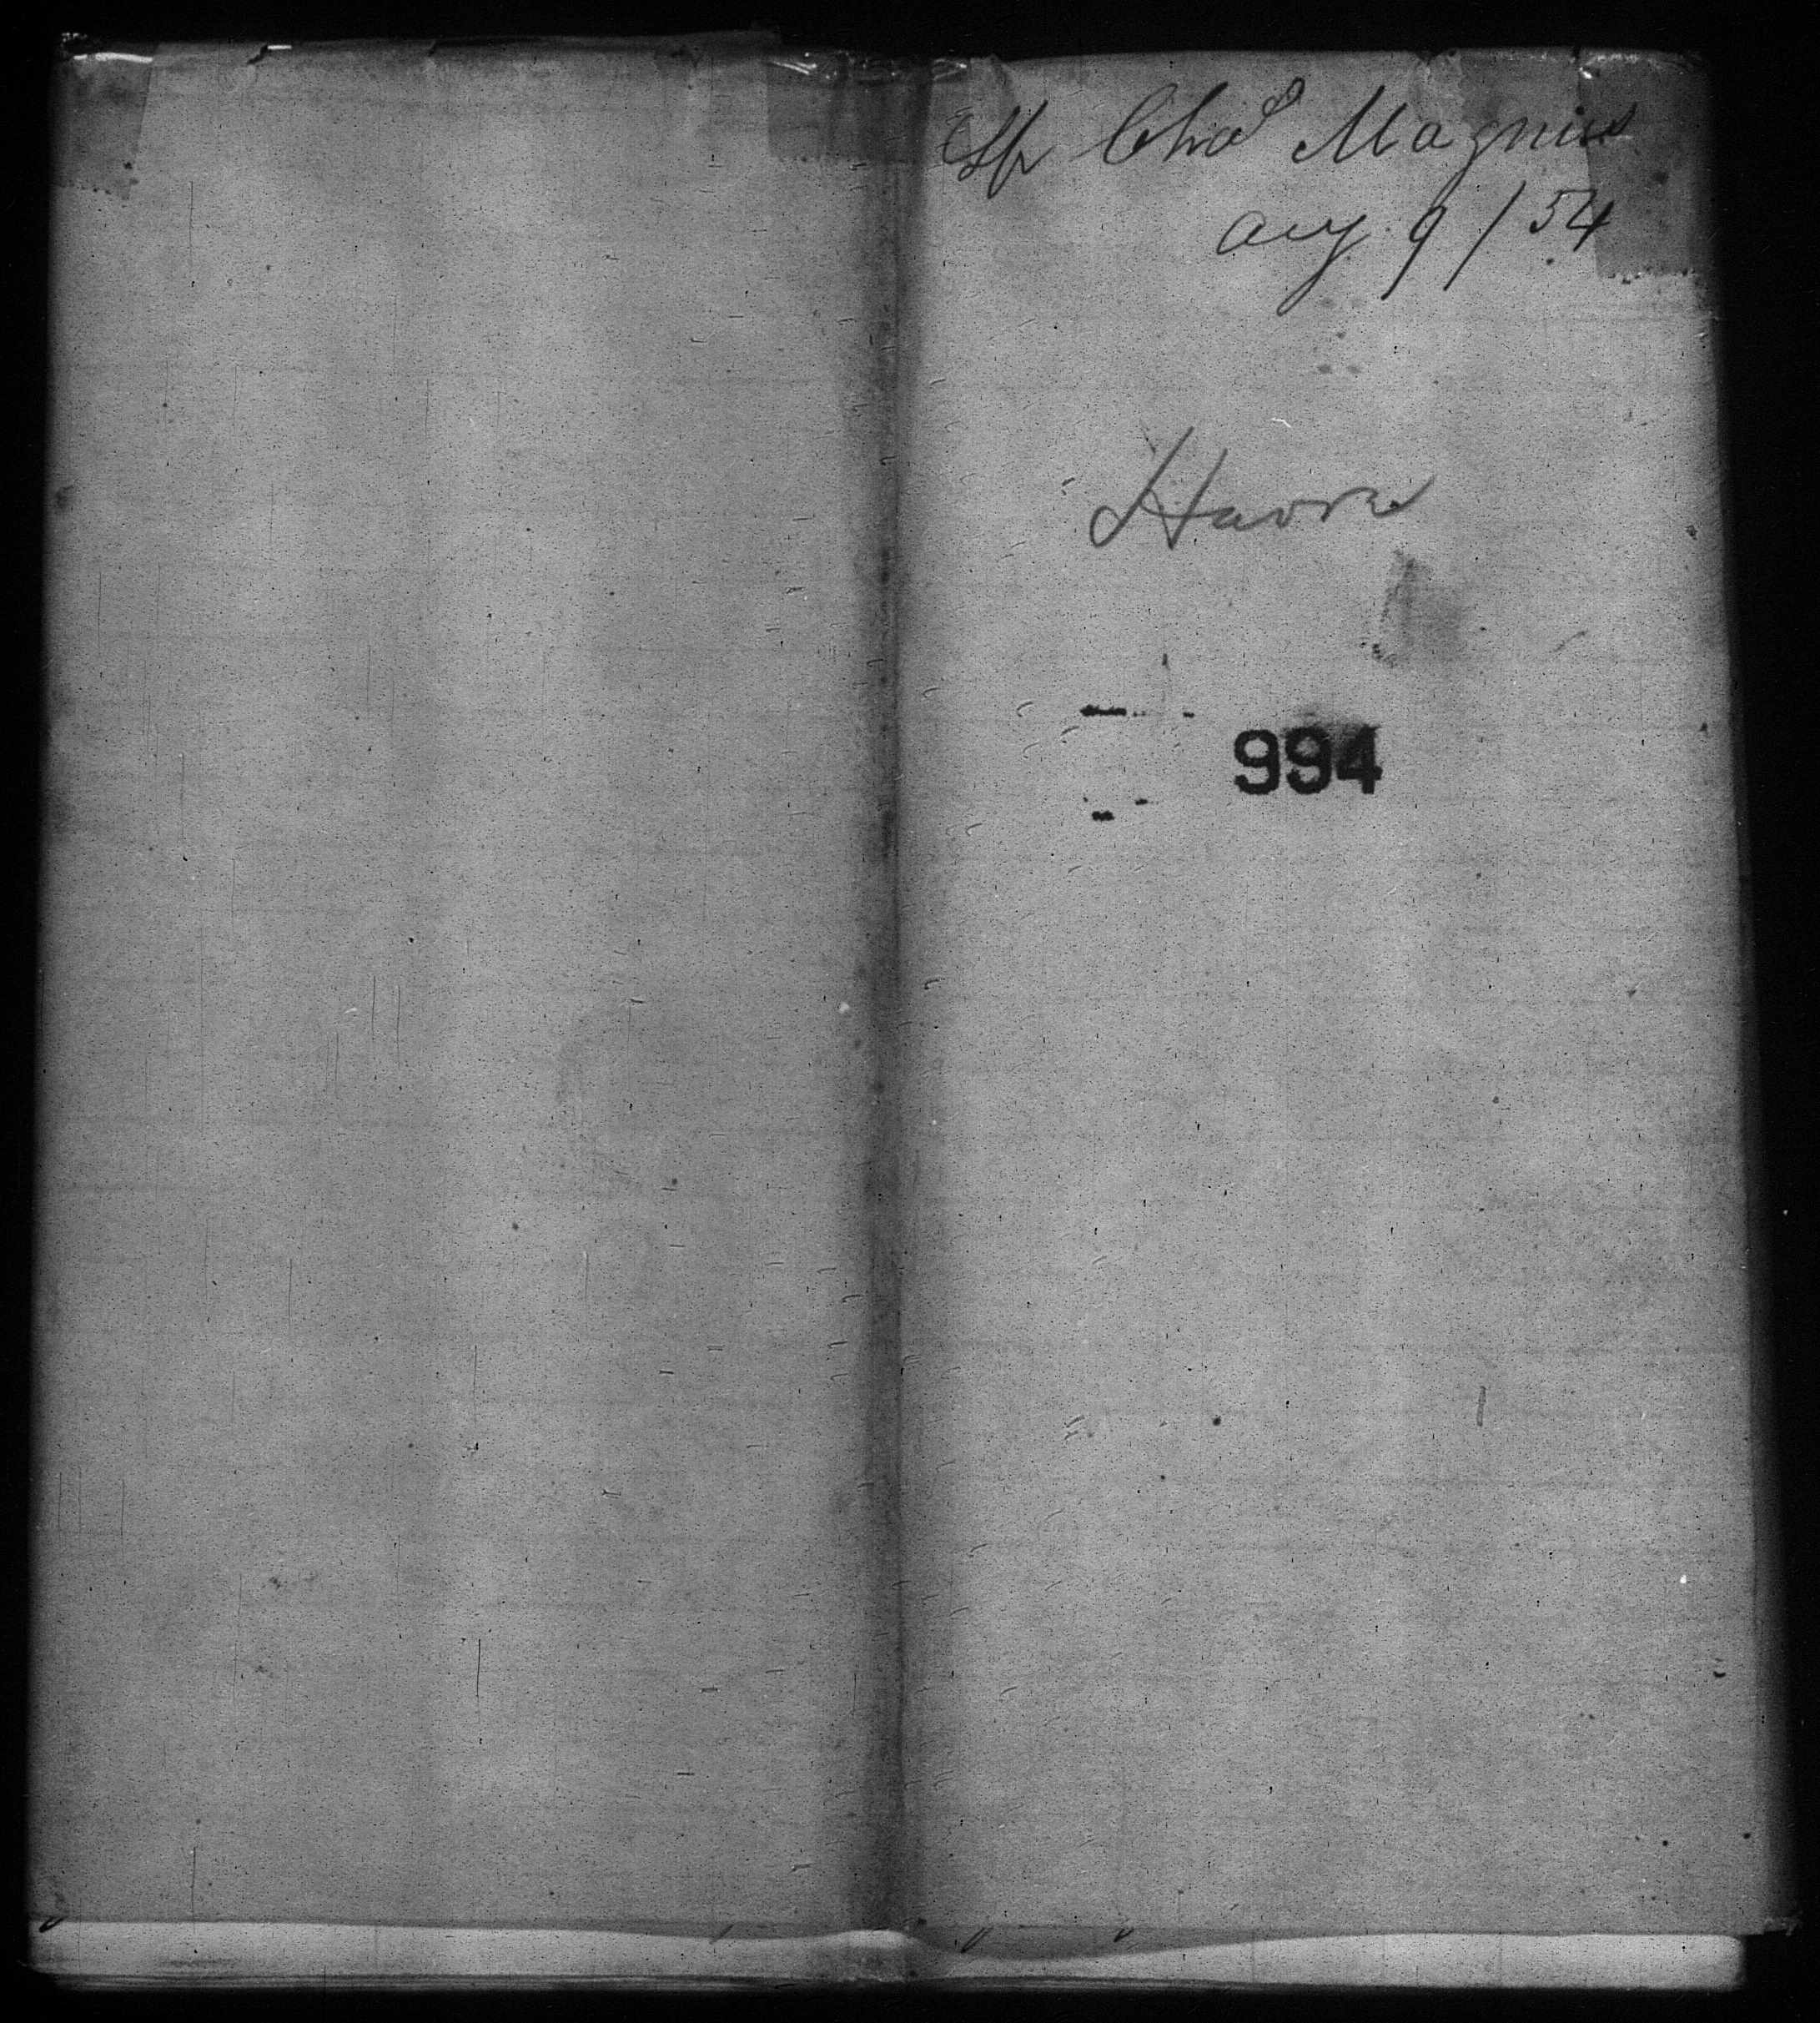 Shp Chas Magnus
aug 9 / 54
Havre
994